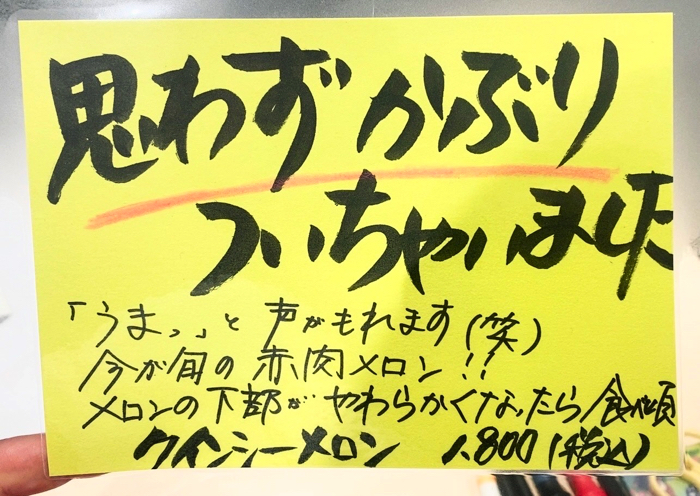 思わずかぶり
ついちゃいました
「うまっ」と 声がもれます(笑)
今が旬の 赤肉メロン!!
メロンの下部が やわらかくなったら 食べ頃
クインシーメロン 1,800(税込)